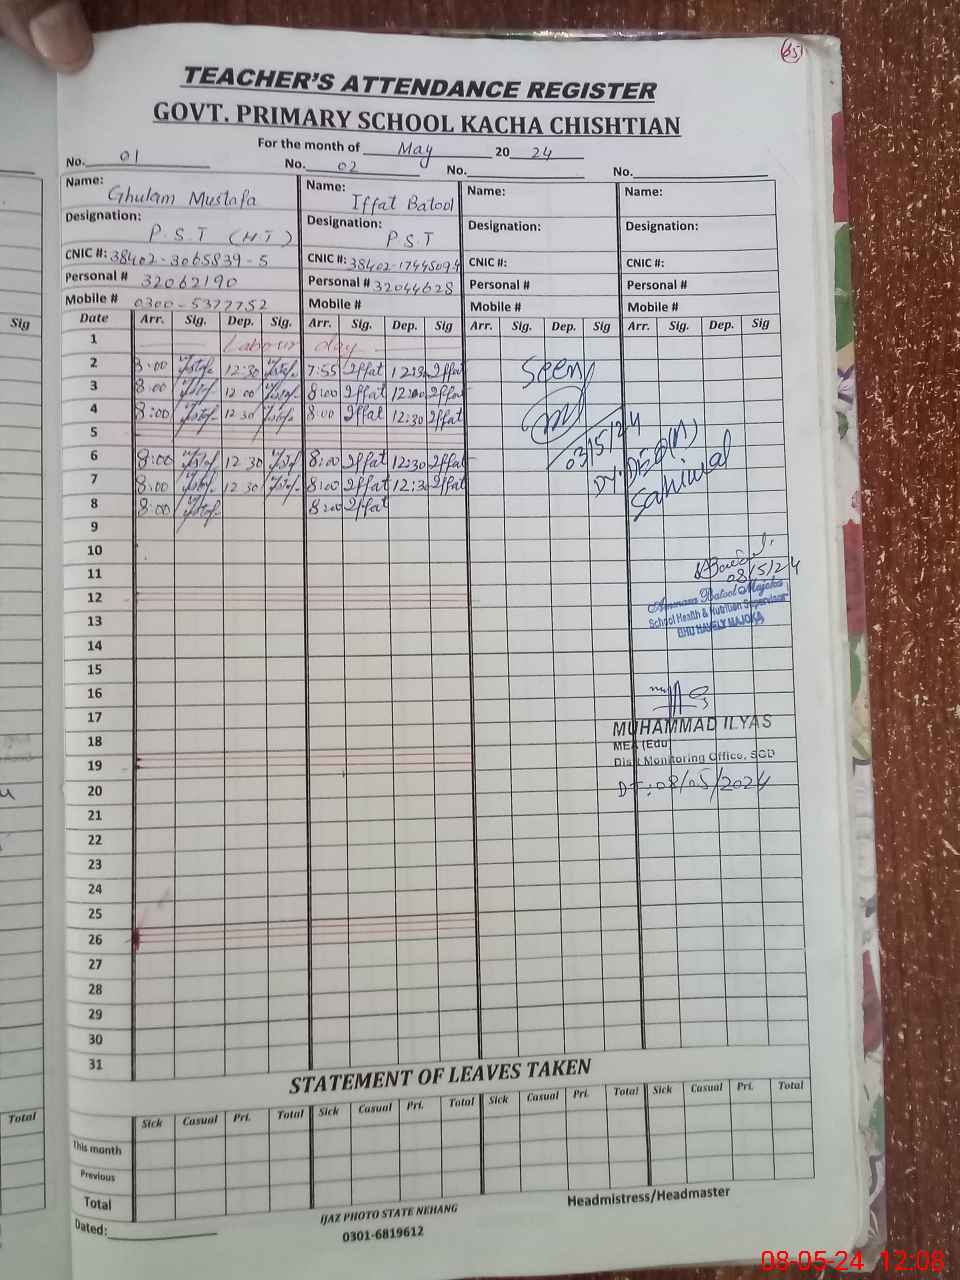 65
TEACHER'S ATTENDANCE REGISTER
GOVT. PRIMARY SCHOOL KACHA CHISHTIAN
For the month of May 2024
No. 01 No. 02 No. No.
Name: Ghulam Mustafa Name: Iffat Batool Name: Name:
Designation: P.S.T (H.T) Designation: P.S.T Designation: Designation:
CNIC #: 38402-3065839-5 CNIC #: 38402-1744509 CNIC #: CNIC #:
Personal # 32062190 Personal # 32044628 Personal # Personal #
Mobile # 0300-5377752 Mobile # Mobile # Mobile #
Sig Date Arr. Sig. Dep. Sig. Arr. Sig. Dep. Sig Arr. Sig. Dep. Sig Arr. Sig. Dep. Sig
1 Labour day
2 8:00 12:30 7:55 Iffat 12:30 Iffat Seen
3 8:00 12:00 8:00 Iffat 12:00 Iffat
4 8:00 12:30 8:00 Iffat 12:30 Iffat
5 03/5/24
6 8:00 12:30 8:00 Iffat 12:30 Iffat DY. DEO(M)
7 8:00 12:30 8:00 Iffat 12:30 Iffat Sahiwal
8 8:00 8:00 Iffat
9
10
11 08/5/24
12 Ammara Batool Majoka
13 School Health & Nutrition Supervisor
BHU HAVELY MAJOKA
14
15
16
17 MUHAMMAD ILYAS
18 MEA (Edu)
19 Distt Monitoring Office, SGD
20 DT: 08/05/2024
21
22
23
24
25
26
27
28
29
30
31
STATEMENT OF LEAVES TAKEN
Total Sick Casual Pri. Total Sick Casual Pri. Total Sick Casual Pri. Total Sick Casual Pri. Total
This month
Previous
Total
Dated: IJAZ PHOTO STATE NEHANG Headmistress/Headmaster
0301-6819612
08-05-24 12:08